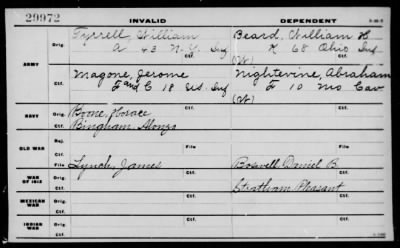 29972
INVALID DEPENDENT
ARMY
Orig. Tyrrell, William Beard, William H
A 43 N.Y. Inf K 68 Ohio Inf
(W)
Ctf. Magone, Jerome Nightevine, Abraham
F and C 18 US. Inf F 10 Mo Cav
(W)
NAVY
Orig. Boone, Horace
Ctf. Bingham, Alonzo
OLD WAR
Rej.
Ctf. File File
WAR OF 1812
Orig. Lynch, James Boswell, Daniel B.
Ctf. Stratham, Pleasant
MEXICAN WAR
Orig.
Ctf.
INDIAN WAR
Orig.
Ctf.